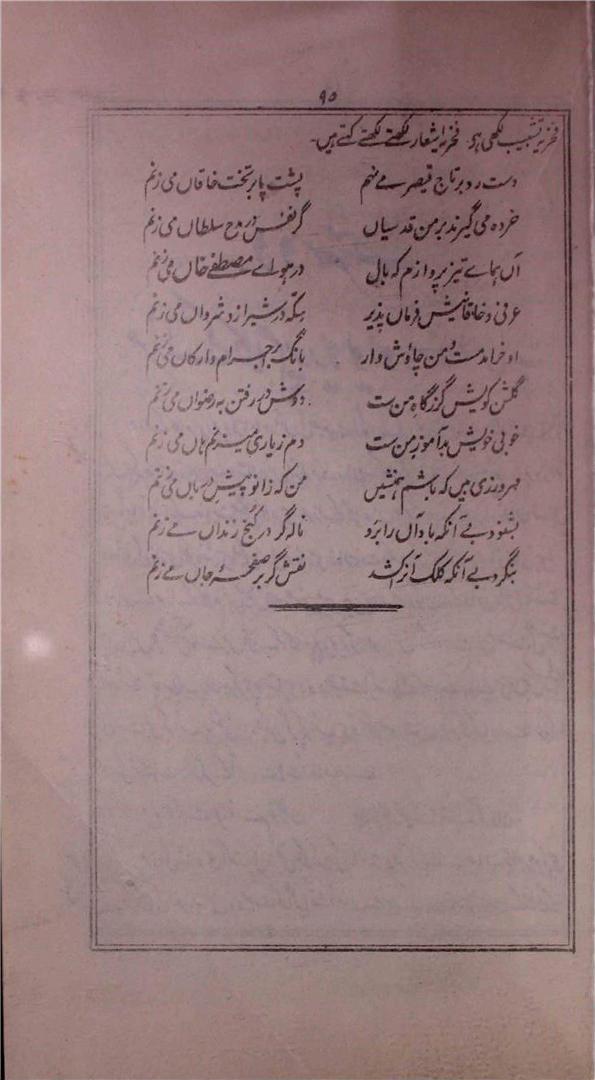 ۹۰
فخریہ تشبیب لکھی ہو۔ فخریہ اشعار لکھتے لکھتے کہتے ہیں۔
دست رد بر تاج قیصر مے نہم پشت پا بر تخت خاقاں می زنم
خردہ می گیرند بر من قدسیاں گر نفس در مدح سلطاں می زنم
آں ہماے تیز پروازم کہ بال در ہواے مصطفےٰ خاں می زنم
عرفی و خاقانیش فرماں پذیر سکہ در شیراز و شرواں می زنم
او خرامد مست و من چاؤش وار بانگ بر بہرام و ارکاں می زنم
گلشن کویش گزرگاہ من ست دوش در رفتن بہ رضواں می زنم
خوبی خویش بدآموز من ست دم ز یاری میزنم ہاں می زنم
مہرورزی بیں کہ باشم ہمنشیں من کہ زانو پیش درباں می زنم
بشنود بے آنکہ باد آں را برد نالہ گر در کنج زنداں مے زنم
بنگرد بے آنکہ کلک آنرا کشد نقش گر بر صفحۂ جاں مے زنم